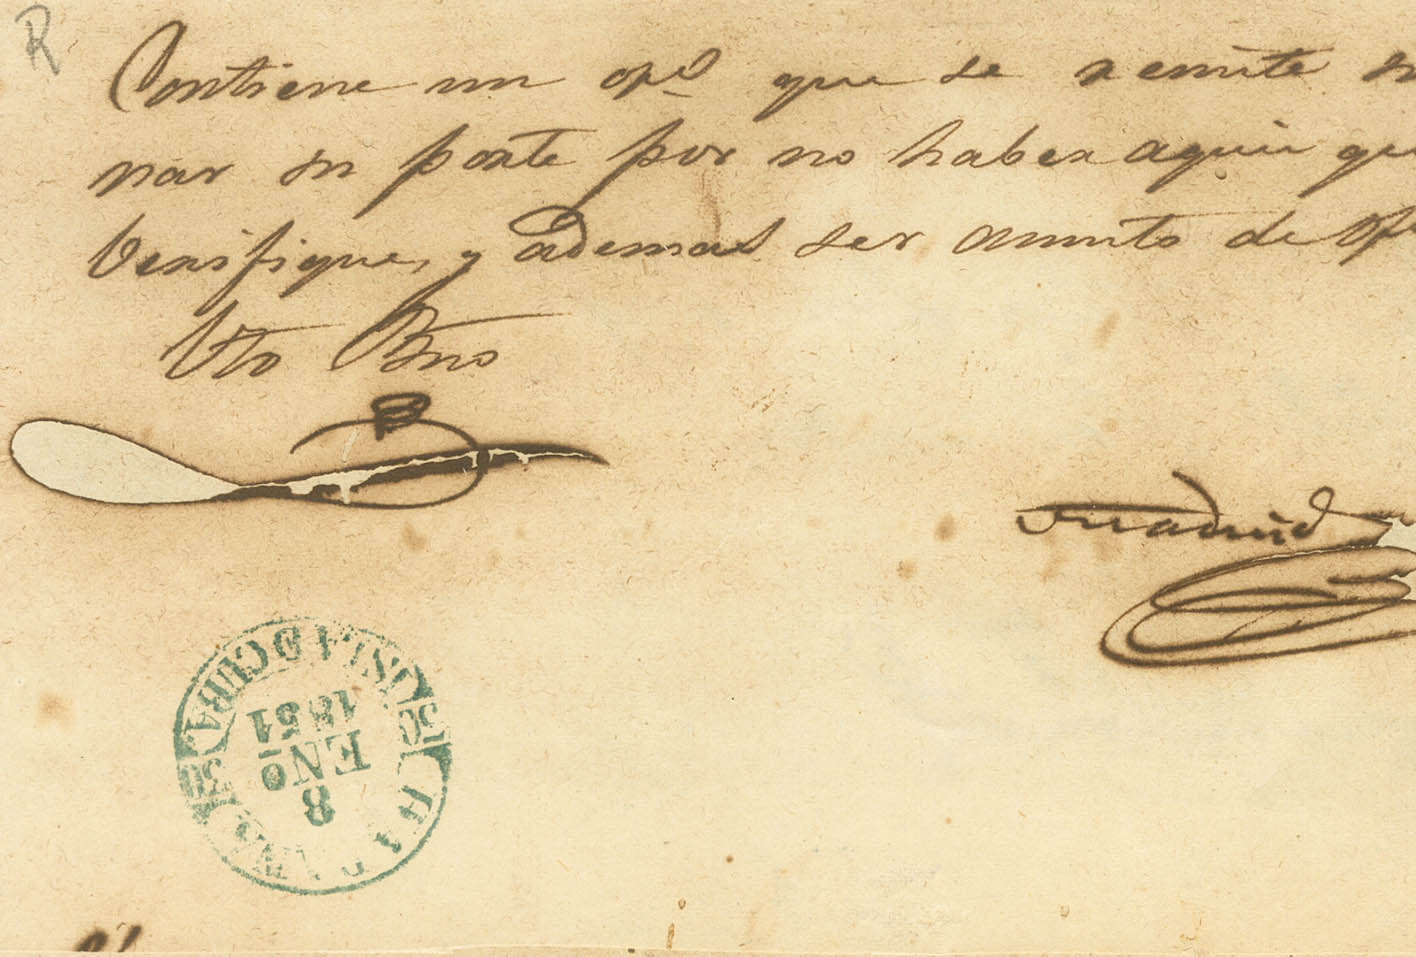 R
Contiene un opº que se remite
nar su porte por no haber aquien
Verifique, y ademas ser asunto de
Vto Bno
Madrid
HABANA
8
ENO
1851
ISLA D CUBA